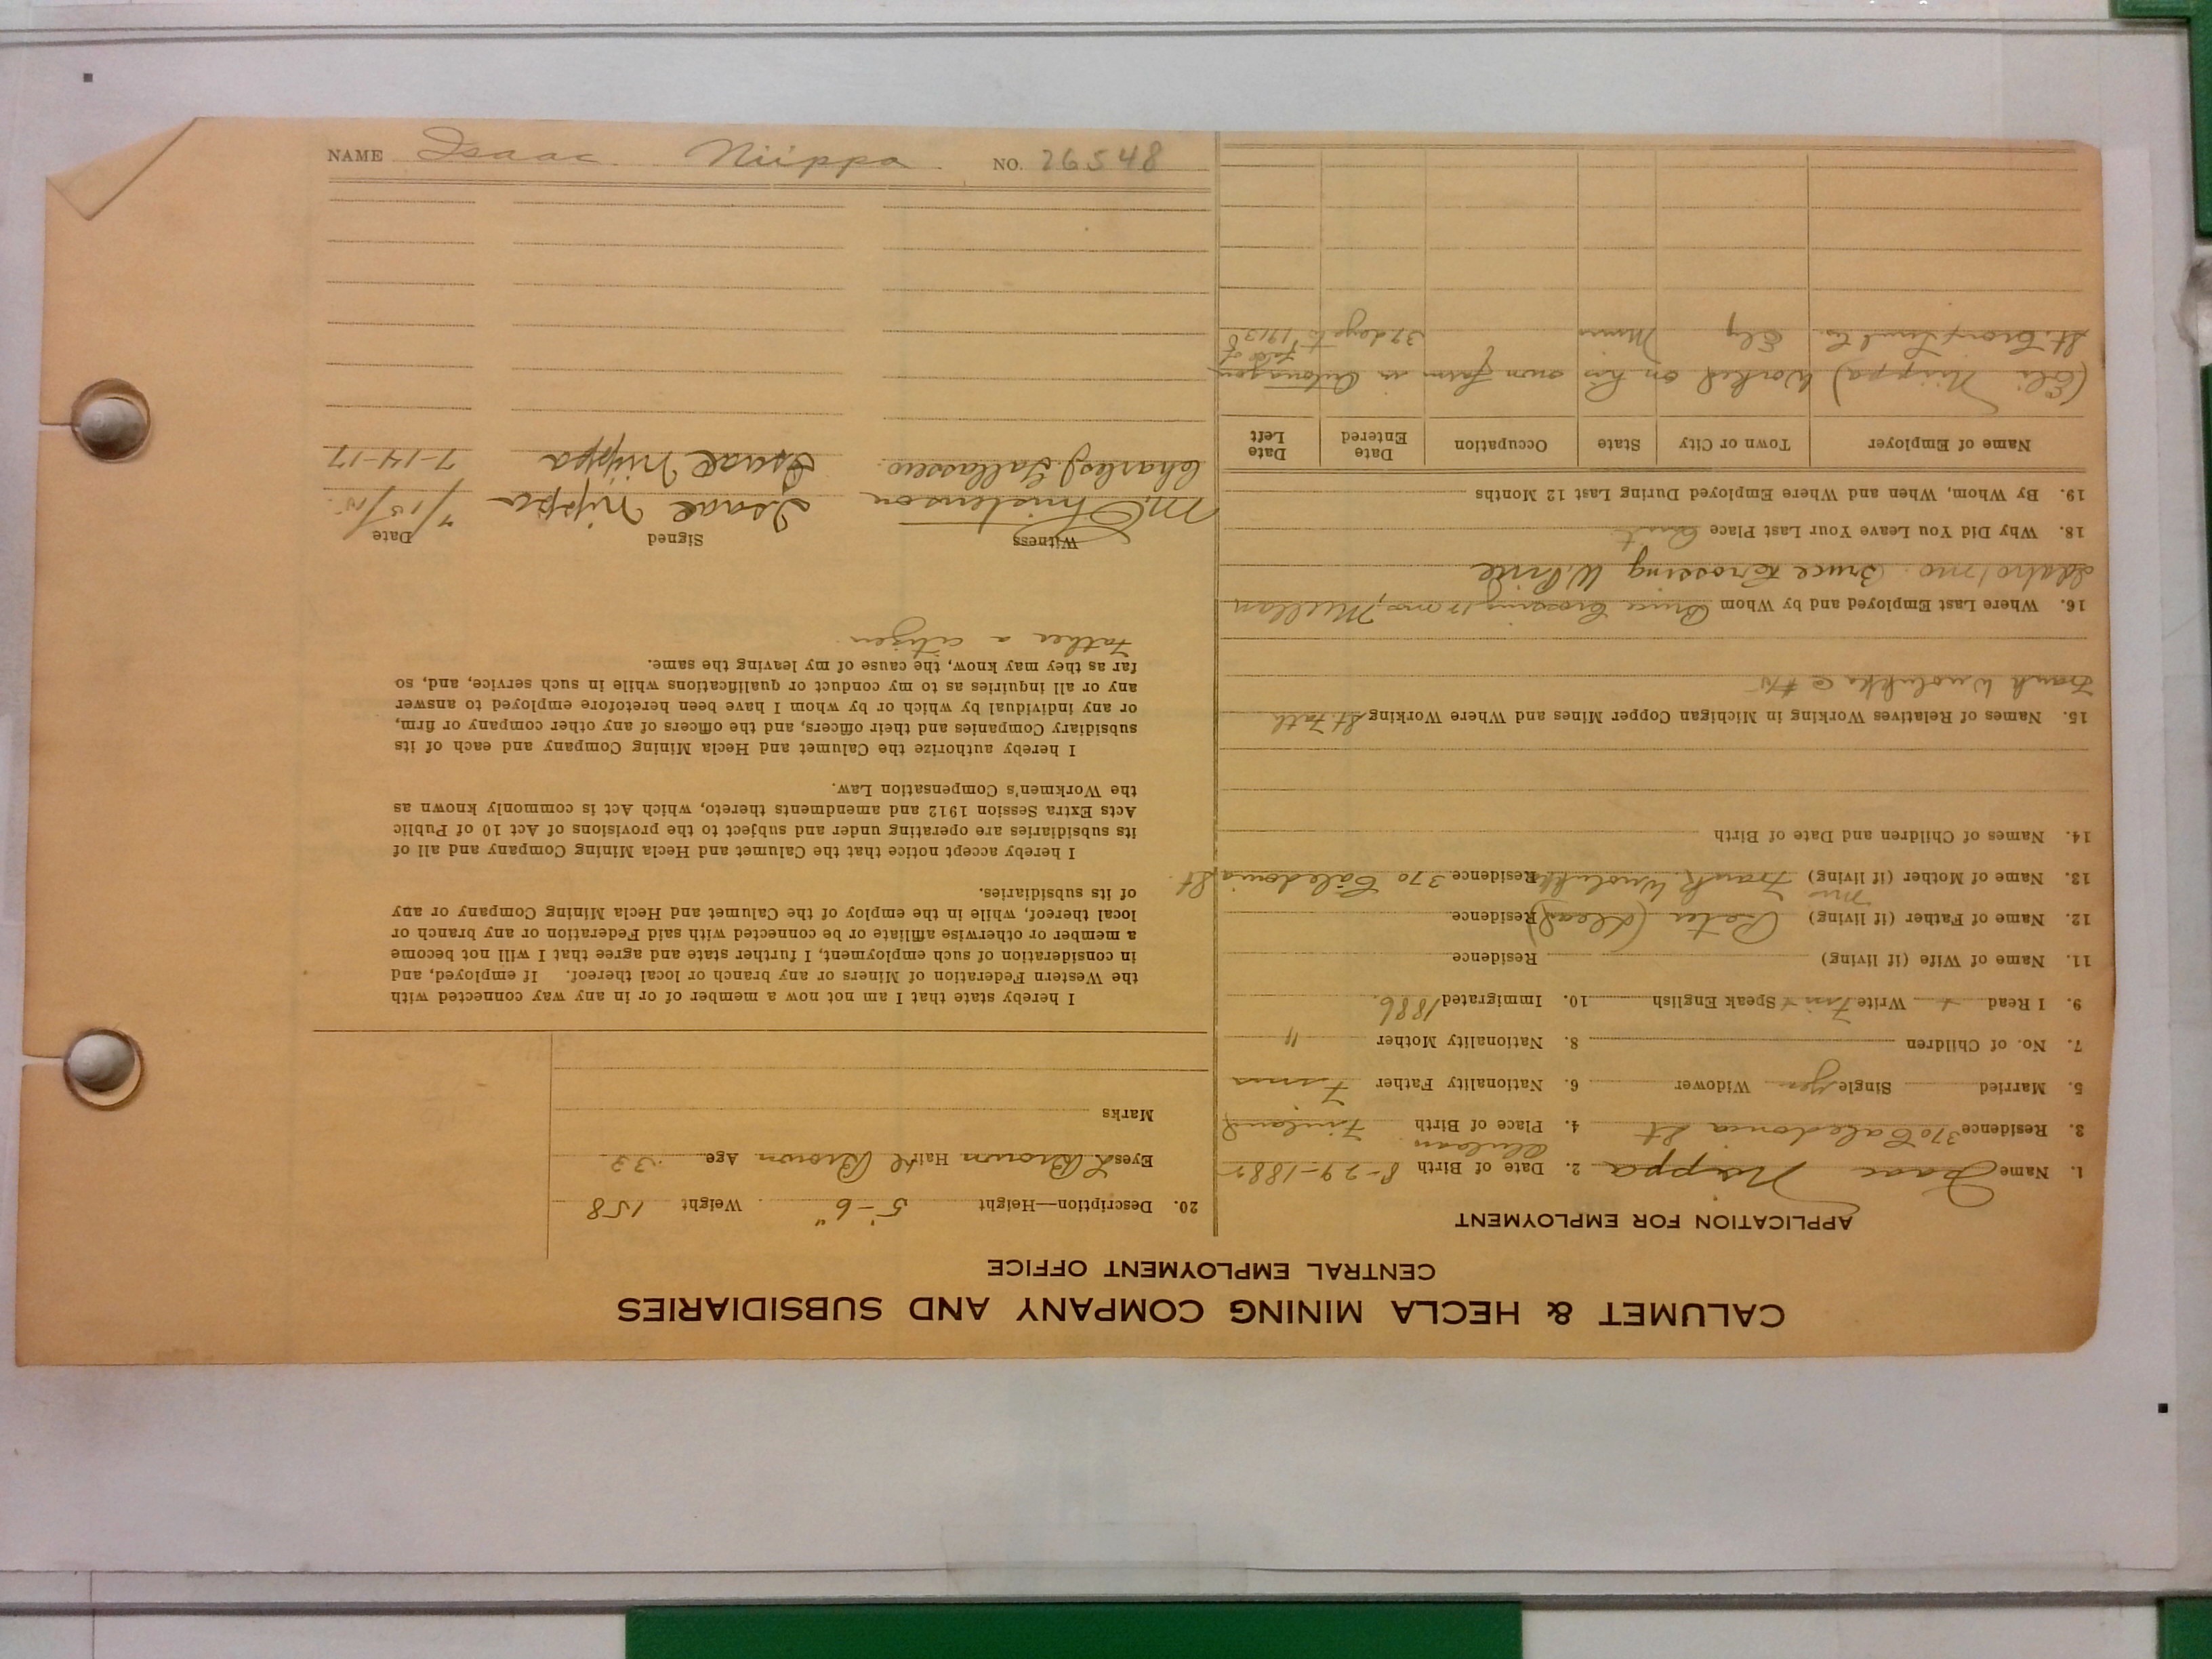 NAME Isaac Niippa NO. 26548
CALUMET & HECLA MINING COMPANY AND SUBSIDIARIES
CENTRAL EMPLOYMENT OFFICE
APPLICATION FOR EMPLOYMENT
1. Name Isaac Niippa 2. Date of Birth 8-29-1882
3. Residence 370 Caledonia St 4. Place of Birth Finland
5. Married Single yes Widower 6. Nationality Father Finn
7. No. of Children 8. Nationality Mother "
9. I Read Write Finn Speak English 10. Immigrated 1886
11. Name of Wife (if living) Residence
12. Name of Father (if living) Peter (dead) Residence
Mrs
13. Name of Mother (if living) Frank Residence 370 Caledonia St.
14. Names of Children and Date of Birth
15. Names of Relatives Working in Michigan Copper Mines and Where Working
Frank
16. Where Last Employed and by Whom Bruce Crossing mo, Mullan
Idaho 1 mo. Bruce Crossing
18. Why Did You Leave Your Last Place Quit
19. By Whom, When and Where Employed During Last 12 Months
Name of Employer Town or City State Occupation Date Entered Date Left
(Eli Niippa) Worked on his own farm in
St. Croix Ely Minn 37 days to 1913
20. Description—Height 5'-6" Weight 158
Eyes L Brown Hair L Brown Age 32
Marks
I hereby state that I am not now a member of or in any way connected with
the Western Federation of Miners or any branch or local thereof. If employed, and
in consideration of such employment, I further state and agree that I will not become
a member or otherwise affiliate or be connected with said Federation or any branch or
local thereof, while in the employ of the Calumet and Hecla Mining Company or any
of its subsidiaries.
I hereby accept notice that the Calumet and Hecla Mining Company and all of
its subsidiaries are operating under and subject to the provisions of Act 10 of Public
Acts Extra Session 1912 and amendments thereto, which Act is commonly known as
the Workmen's Compensation Law.
I hereby authorize the Calumet and Hecla Mining Company and each of its
subsidiary Companies and their officers, and the officers of any other company or firm,
or any individual by which or by whom I have been heretofore employed to answer
any or all inquiries as to my conduct or qualifications while in such service, and, so
far as they may know, the cause of my leaving the same.
Father a citizen
Witness Signed Date
Isaac Niippa 7/15/15
Charles J. Isaac Niippa 7-14-17